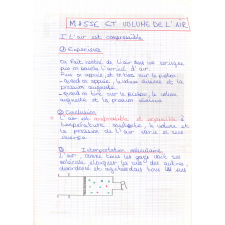 MASSE ET VOLUME DE L'AIR
I. L'air est compressible
① Expérience
On fait rentré de l'air dans une seringue
puis on bouche l'arrivé d'air.
Puis on appuie, et on tire sur le piston.
- quand on appuie, le volume diminue et la
pression augmente
- quand on tire sur le piston, le volume
augmente et la pression diminue
② Conclusion
L'air est compressible et expansible à
température constante, le volume et
la pression de l'air varie en sens
inverse
③ Interprétation moléculaire
L'air, comme tous les gaz sont des
molécules éloignées les unes des autres,
désordonnées et